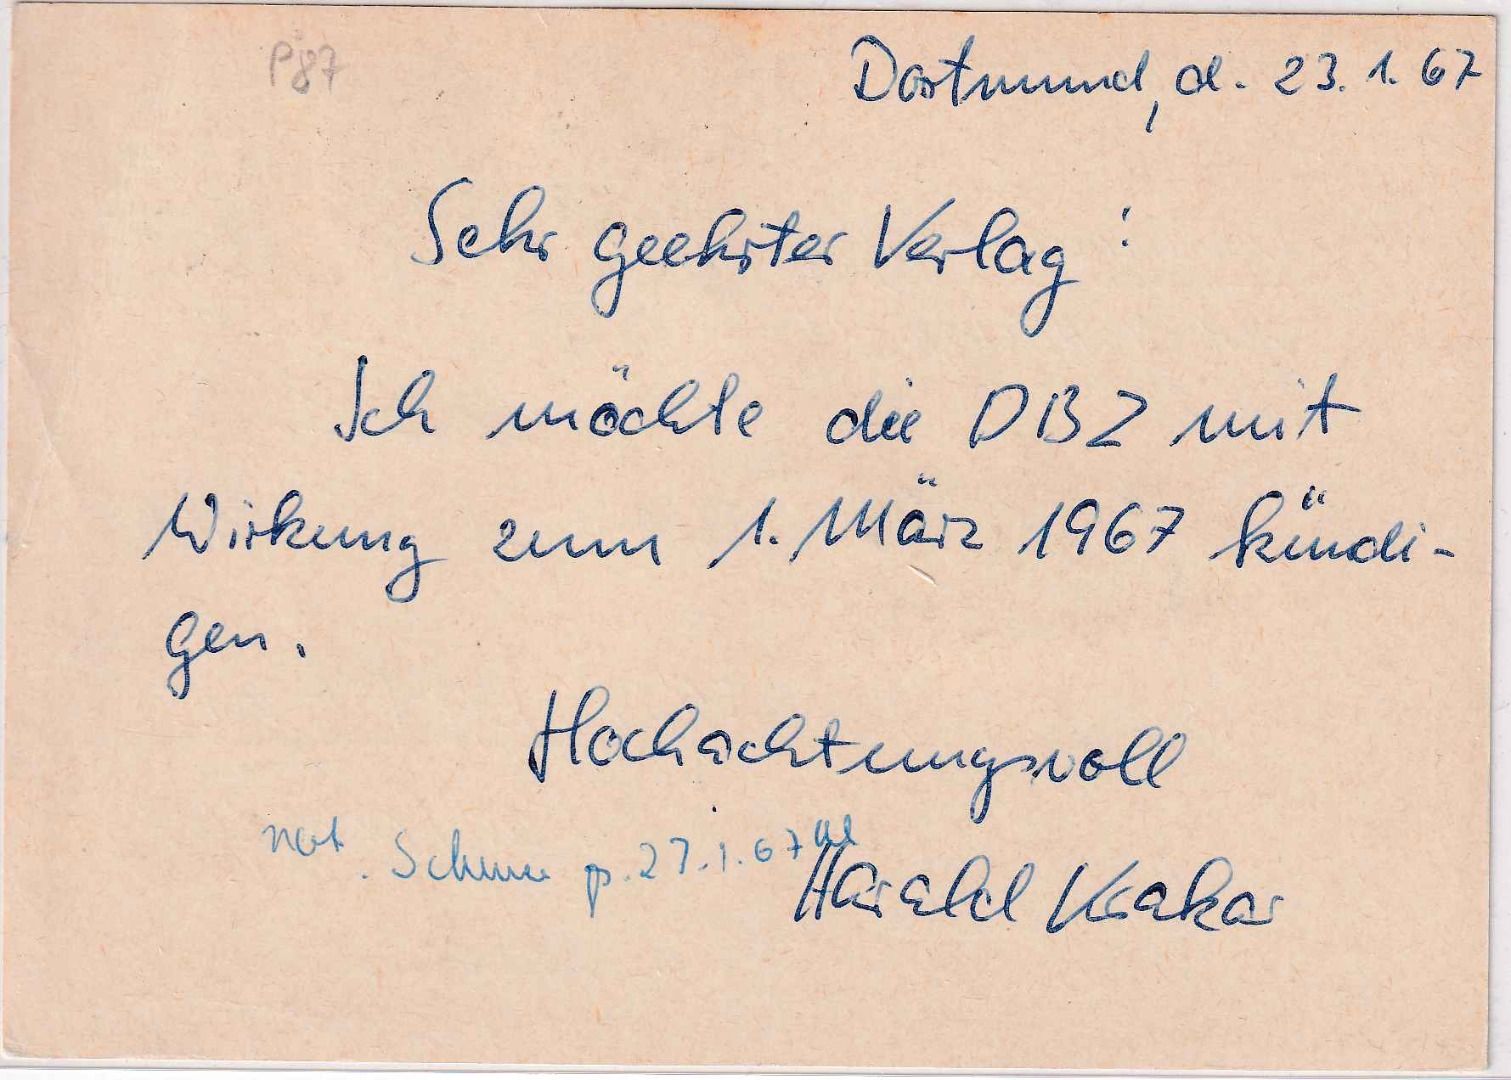 P87
Dortmund, d. 23.1.67
Sehr geehrter Verlag!
Ich möchte die DBZ mit
Wirkung zum 1. März 1967 kündi-
gen.
Hochachtungsvoll
not. 27.1.67
Harald Krakar